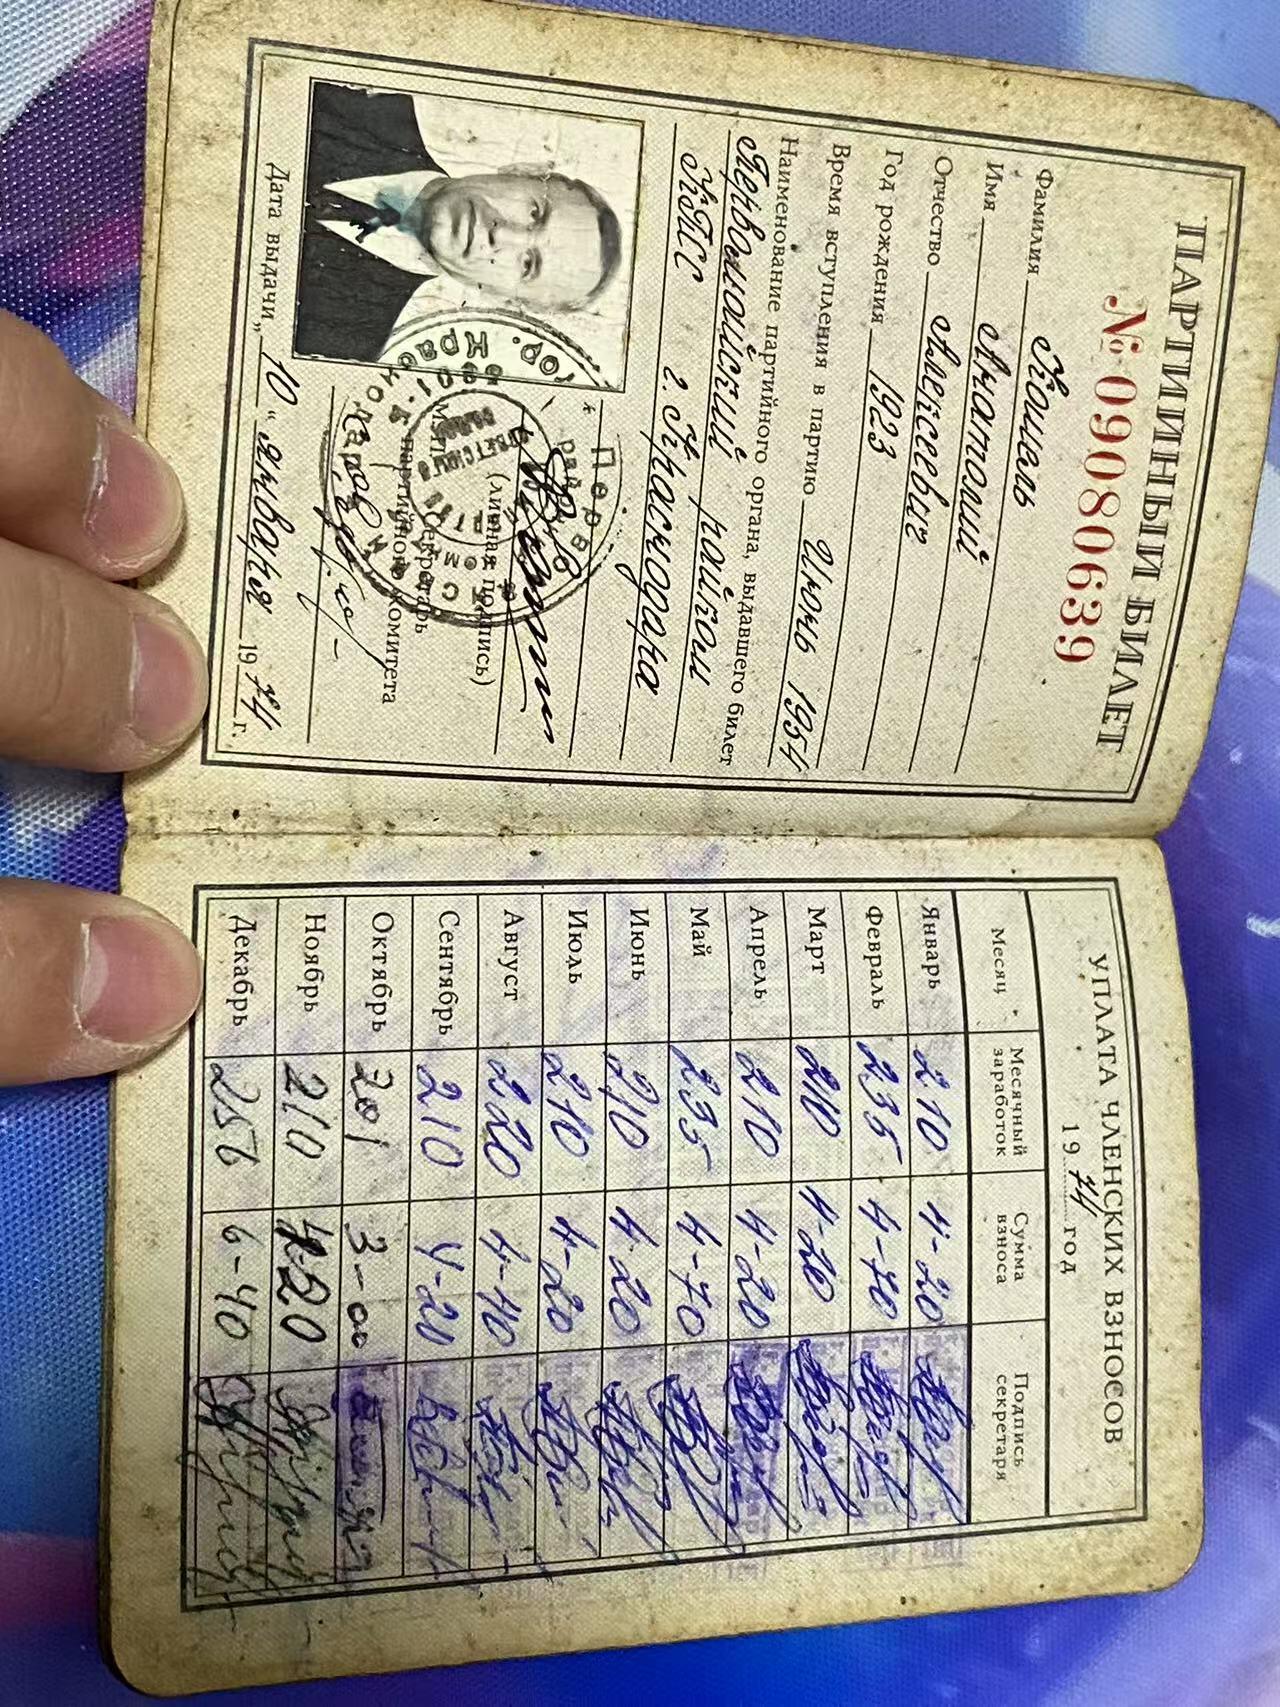 ПАРТИЙНЫЙ БИЛЕТ
№ 09080639
Фамилия Коноваль
Имя Анатолий
Отчество Алексеевич
Год рождения 1923
Время вступления в партию Июнь 1954
Наименование партийного органа, выдавшего билет
Первомайский райком
КПСС г. Краснодара
(личная подпись)
Секретарь
партийного комитета
Дата выдачи „10“ января 1974 г.
УПЛАТА ЧЛЕНСКИХ ВЗНОСОВ
1974 год
Месяц Месячный заработок Сумма взноса Подпись секретаря
Январь 210 4-20
Февраль 235 4-70
Март 210 4-20
Апрель 210 4-20
Май 235 4-70
Июнь 210 4-20
Июль 210 4-20
Август 220 4-40
Сентябрь 210 4-20
Октябрь 201 3-00
Ноябрь 210 4-20
Декабрь 256 6-40